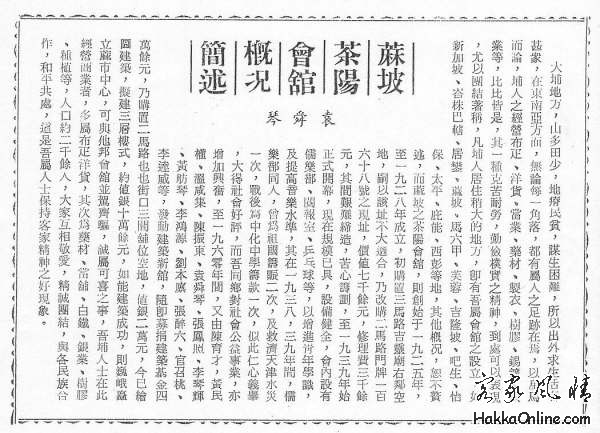 蔴坡茶陽會舘概況簡述
袁舜琴
大埔地方，山多田少，地瘠民貧，謀生困難，所以出外求生活
甚衆，在東南亞方面，無論每一角落，都有屬人之足跡在焉，以
而論，埔人之經營布疋、洋貨、當業、藥材、製衣、樹膠、錫鑛
業等，比比皆是，其一種克苦耐勞，勤儉樸實之精神，到處可以表現
，尤以團結著稱，凡埔人居住稍大的地方，卽有吾屬會舘之設立，如
新加坡、峇株巴轄、居鑾、蔴坡、馬六甲、芙蓉、吉隆坡、吧生、怡
保、太平、庇能、西彭等地，其他概況，恕不贅
述，而蔴坡之茶陽會舘，則創始于一九二五年，
至一九二八年成立，初購置三馬路吉靈廟右鄰空
地，嗣以該址不大適合，乃改購二馬路門牌一百
六十八號之現址，價值七千餘元，修理費三千餘
元，其間艱難締造，苦心籌劃，至一九三九年始
正式開幕，現在規模已具，設備健全，會內設有
儒樂部、閱報室、乒乓球等，以增進靑年學識，
及提高音樂水準，其在一九三八，三九年間，儒
樂部同人，曾爲祖國籌賑二次，及救濟天津水災
一次，戰後爲中化中學籌款一次，似此仁心義舉
，大得社會好評，而吾同鄕對社會公益事業，亦
增加興奮，至一九六零年間，又由陳育才，黃民
權、溫咸集、陳振東、袁舜琴、張鳳照、李琴輝
、黃舫琴、李鴻源、劉本應、張靜六、官召桃、
李達咸等，發動建築新舘，隨卽募捐建築基金四
萬餘元，乃購置二馬路也也街口三間舖位空地，値銀二萬元，今已繪
圖建築，擬建三層樓式，約値銀十萬餘元，如能建築成功，則巍峨矗
立蔴市中心，可與他邦會舘並駕齊驅，誠屬可喜之事，吾埔人士在此
經營商業者，多屬布疋洋貨，其次爲藥材、當舖、白鐵、銀業、樹膠
、種植等，人口約二千餘人，大家互相敬愛，精誠團結，與各民族合
作，和平共處，這是吾屬人士保持客家精神之好現象。
客家風情
HakkaOnline.com